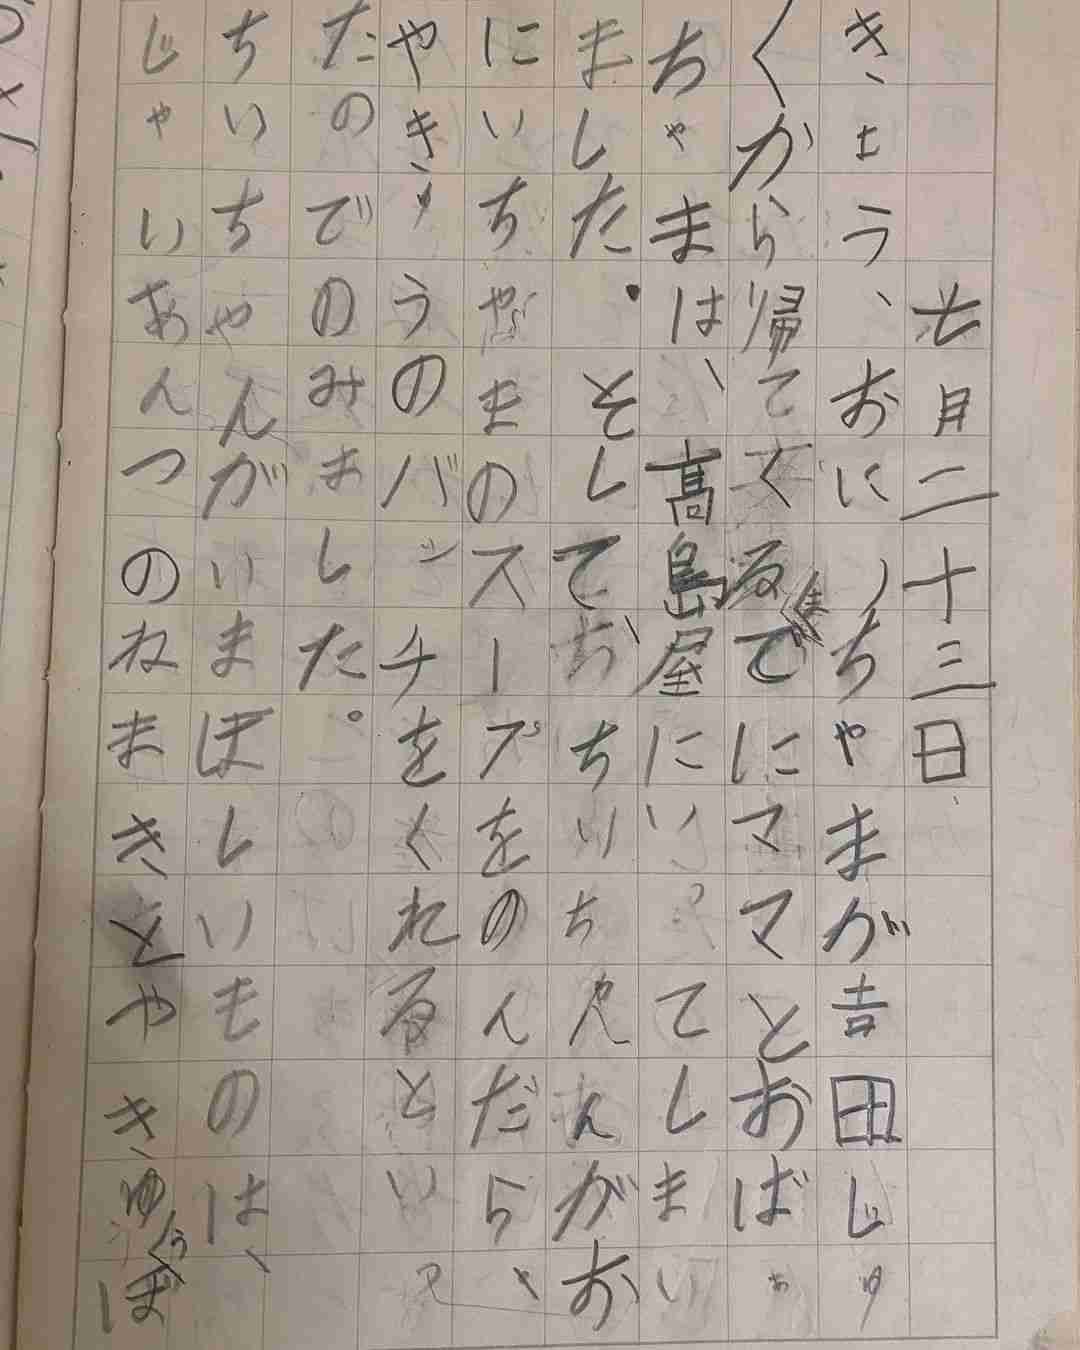 七月二十三日
きょう、おにいちゃまが吉田じゅ
くから帰てくるまでにママとおばあ
ちゃまは、高島屋にいってしまい
ました。そしておちいちちゃんがお
にいちゃまのスープをのんだら、
やきゅうのバッチをくれるといっ
たのでのみました。
ちいちちゃんがいまほしいものは、
じゃいあんつのねまきとやきゅうぼ